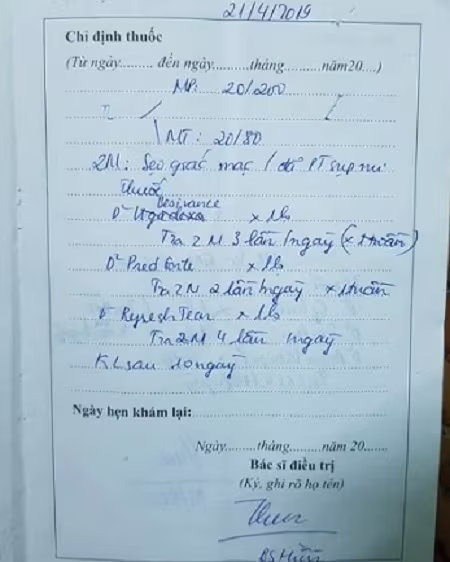 21/4/2019
Chỉ định thuốc
(Từ ngày......... đến ngày............tháng..........năm20....)
MP: 20/200
MT: 20/80
2M: Sẹo giác mạc / đã PT sụp mi
Thuốc
Besivance
D² x 1lọ
Tra 2M 3 lần /ngày (x 1 tuần)
D² Pred forte x 1lọ
Tra 2M 2 lần/ngày x 1 tuần
D² Refresh Tear x 1lọ
Tra 2M 4 lần /ngày
KL sau 10 ngày
Ngày hẹn khám lại:
Ngày.........tháng.........năm 20......
Bác sĩ điều trị
(Ký, ghi rõ họ tên)
BS